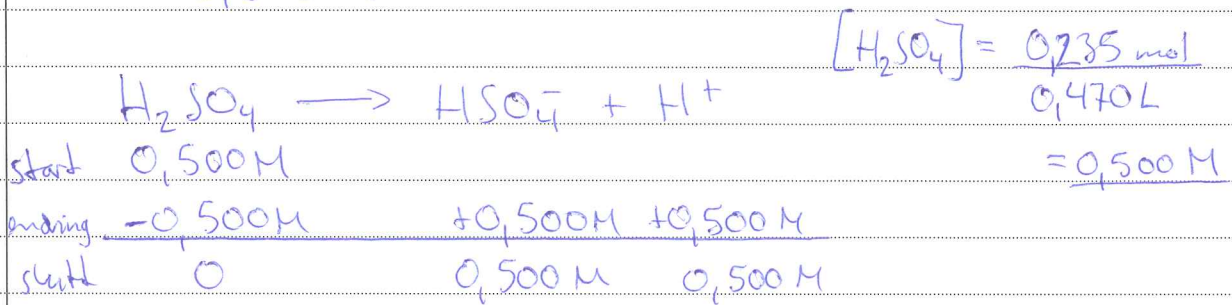 [H₂SO₄] = 0,235 mol
0,470L
H₂SO₄ → HSO₄⁻ + H⁺
start 0,500M = 0,500 M
endring -0,500M +0,500M +0,500M
slutt 0 0,500 M 0,500 M